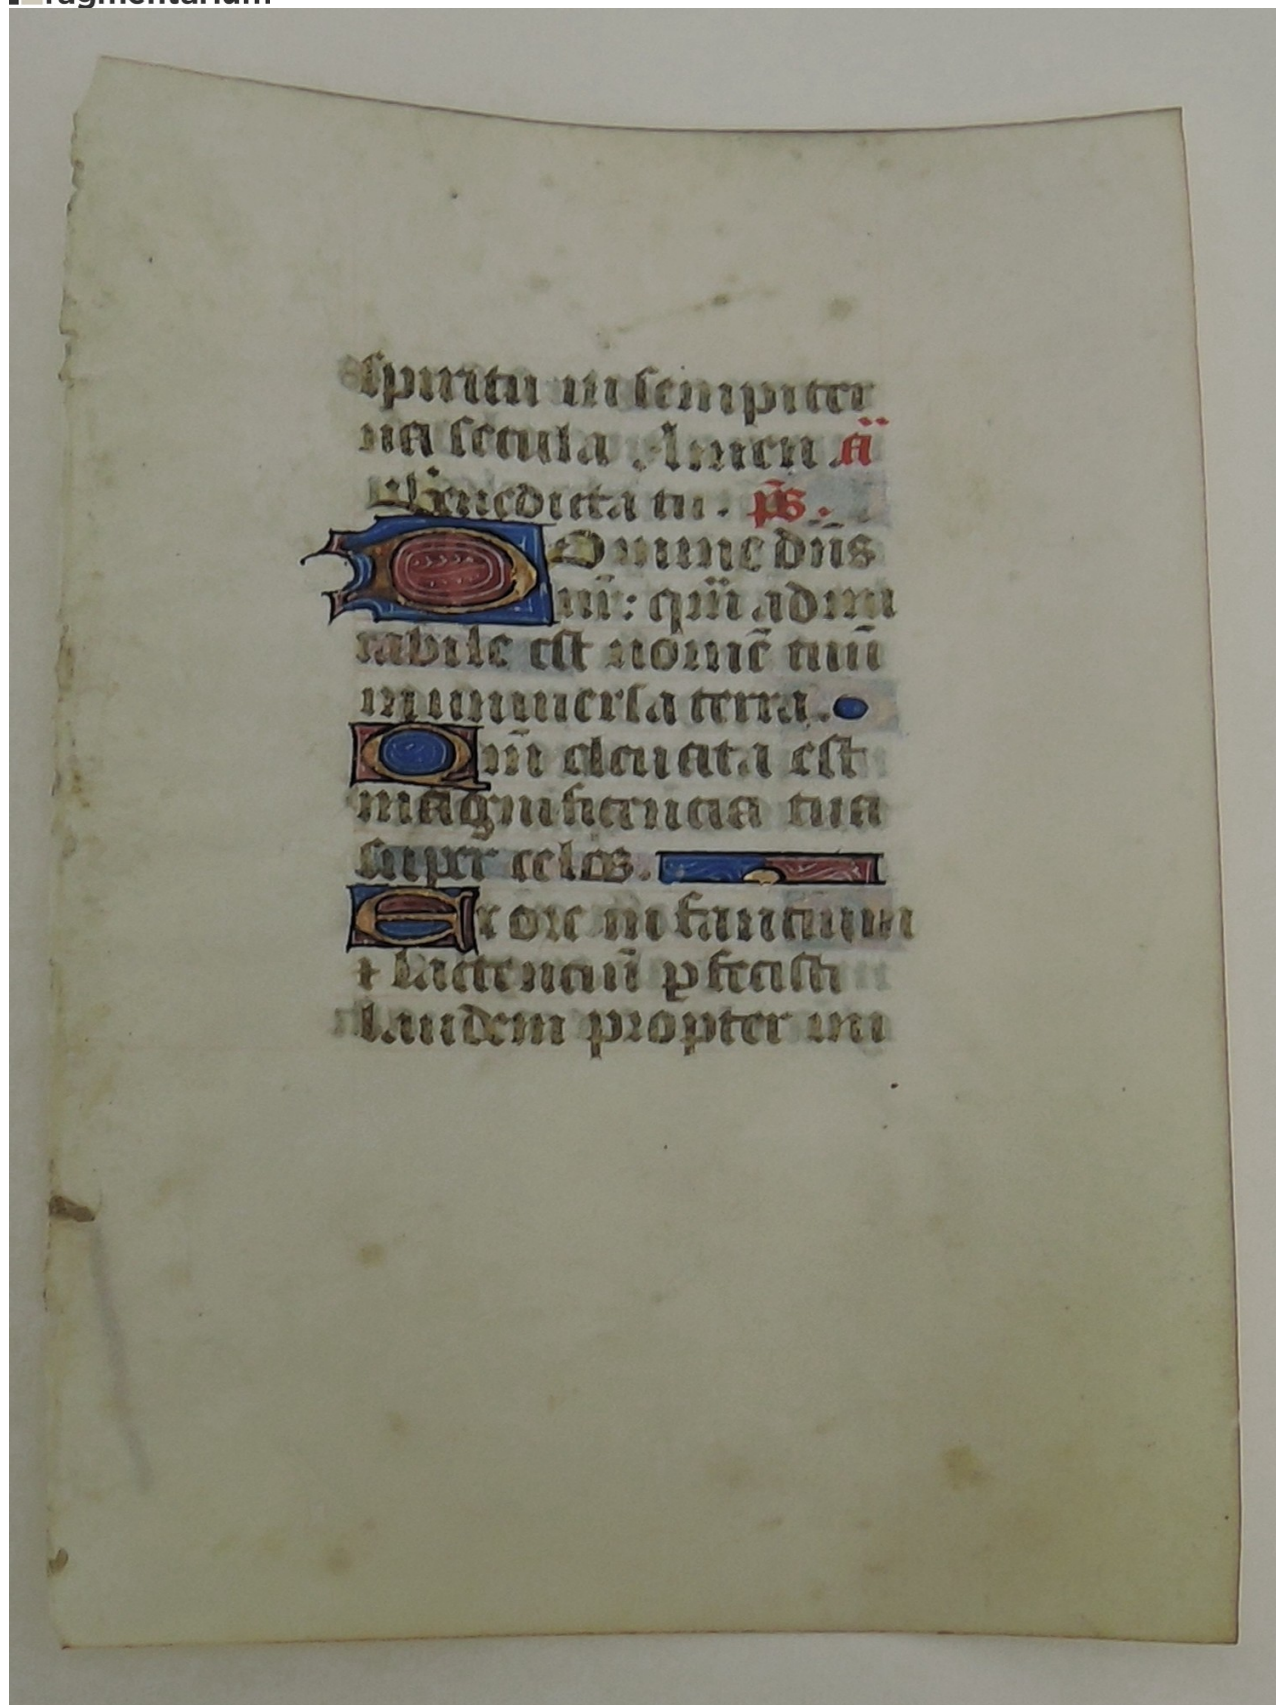 fragmentarium
spiritu in sempiter
na secula Amen ā
Benedicta tu. ps̄.
Domine dn̄s
nr̄: qm̄ admi
rabile est nomē tuū
in uniuersa terra.
Qm̄ eleuata est
magnificencia tua
super celos.
Ex ore infancium
⁊ lactenciū ꝑfecisti
laudem propter ini